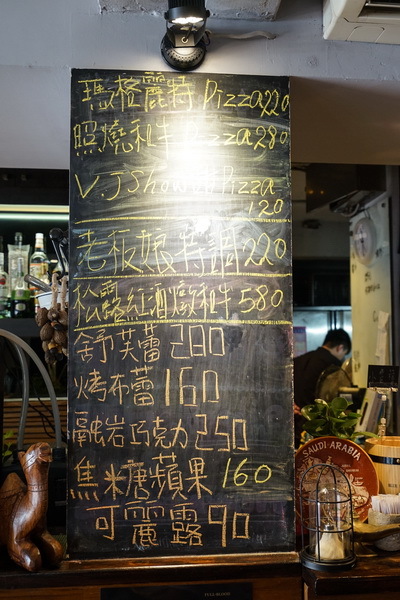 瑪格麗特 Pizza 220
照燒和牛 Pizza 280
VJ Show Pizza
120
老板娘特調 220
松露紅酒燉和牛 580
舒芙蕾 280
烤布蕾 160
融岩巧克力 250
焦糖蘋果 160
可麗露 90
SAUDI-ARABIA